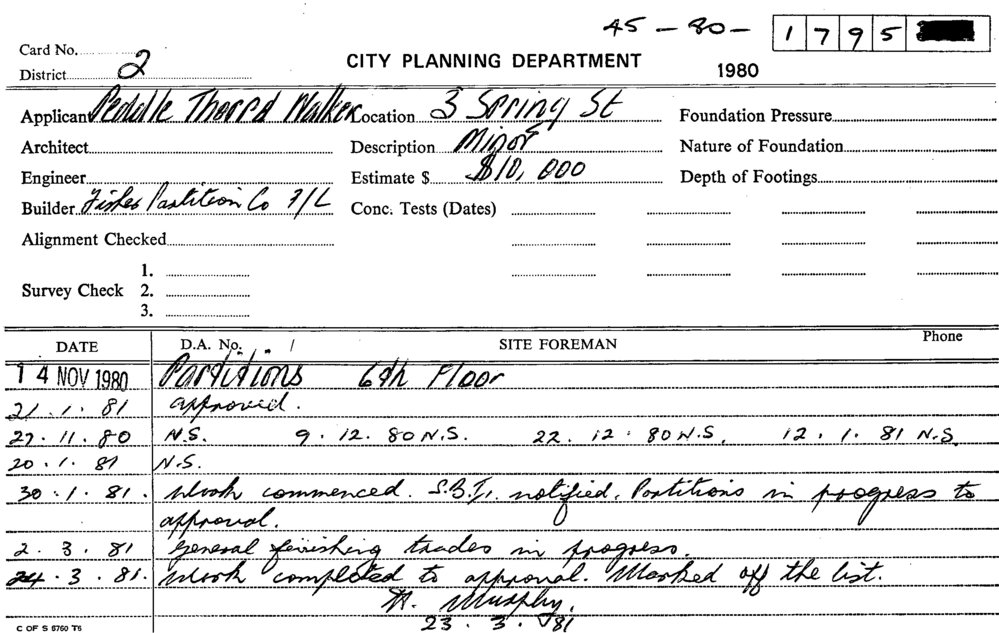 45 - 80 - 1 7 9 5
Card No.
CITY PLANNING DEPARTMENT
District 2
1980
Applicant Peddle Thorp Walker Location 3 Spring St Foundation Pressure
Architect Description Minor Nature of Foundation
Engineer Estimate $ $10,000 Depth of Footings
Builder Fisher Partition Co P/L Conc. Tests (Dates)
Alignment Checked
1.
Survey Check 2.
3.
DATE D.A. No. / SITE FOREMAN Phone
14 NOV 1980 Partitions 6th Floor
21.1.81 approved.
27.11.80 N.S. 9.12.80 N.S. 22.12.80 N.S. 12.1.81 N.S.
20.1.81 N.S.
30.1.81. Work commenced. S.B.I. notified. Partitions in progress to
approval.
2.3.81 General finishing trades in progress.
24.3.81. Work completed to approval. Marked off the list.
Murphy.
23.3.81
C OF S 6760 T6